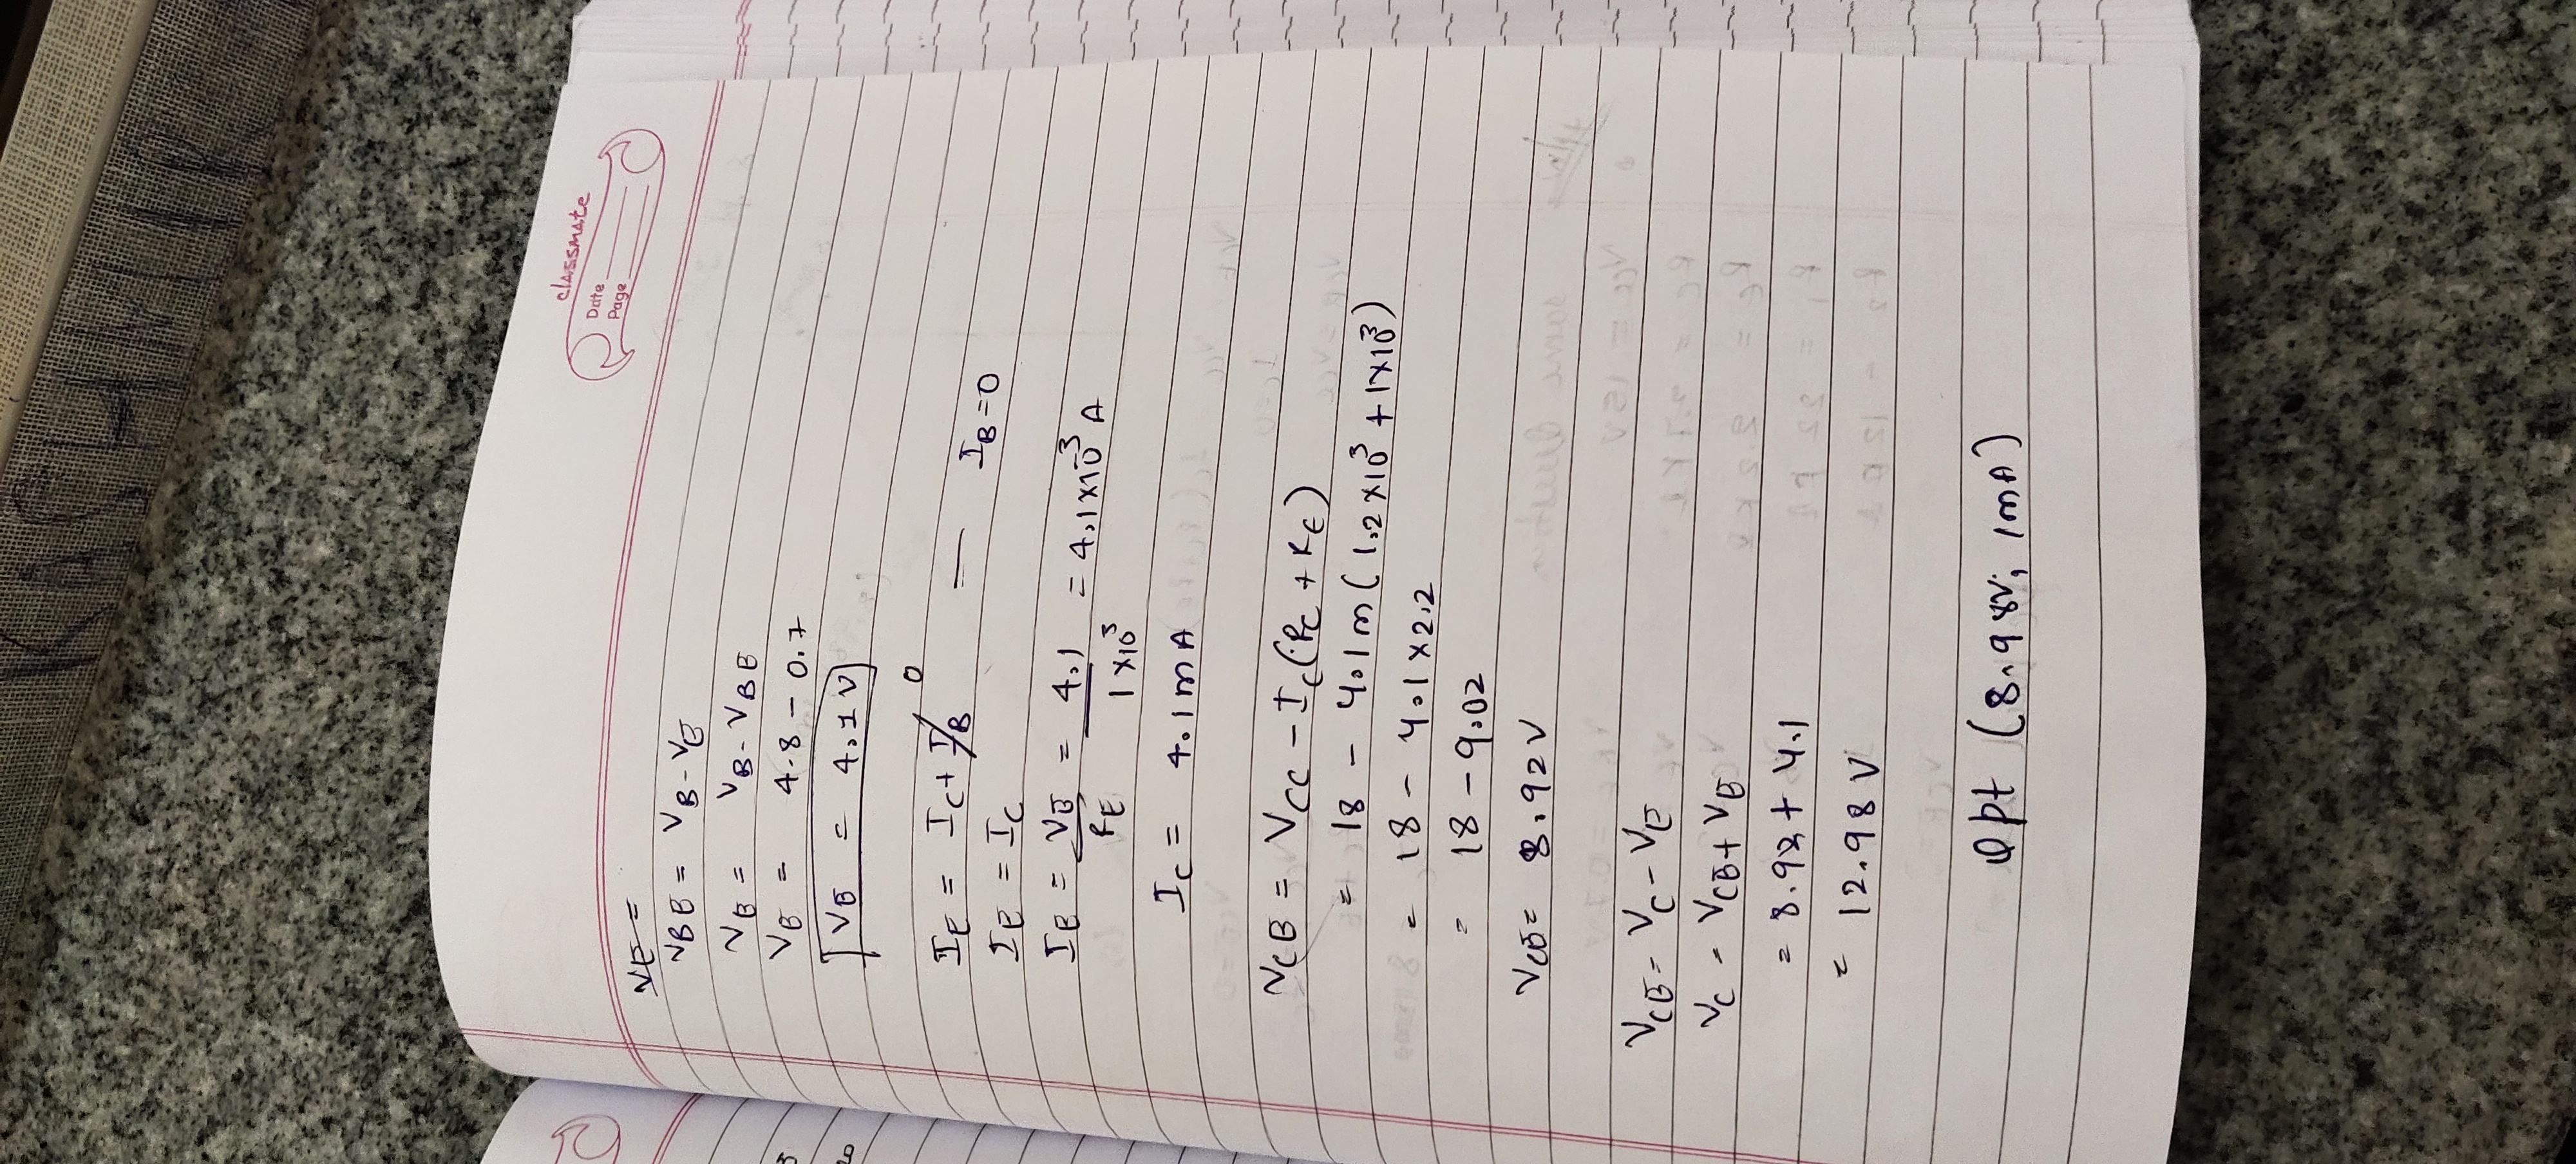 KASHMIR
classmate
Date
Page
VE =
VBE = VB - VE
VE = VB - VBE
VE = 4.8 - 0.7
VE = 4.1V
IE = IC + IB 0 — IB = 0
IE = IC
IE = VE/RE = 4.1/1×10³ = 4.1×10⁻³ A
IC = 4.1mA
VCE = VCC - IC(RC + RE)
= 18 - 4.1m(1.2×10³ + 1×10³)
= 18 - 4.1×2.2
= 18 - 9.02
VCE = 8.92V
VCE = VC - VE
VC = VCE + VE
= 8.92 + 4.1
= 12.98 V
Qpt (8.98V; 1mA)